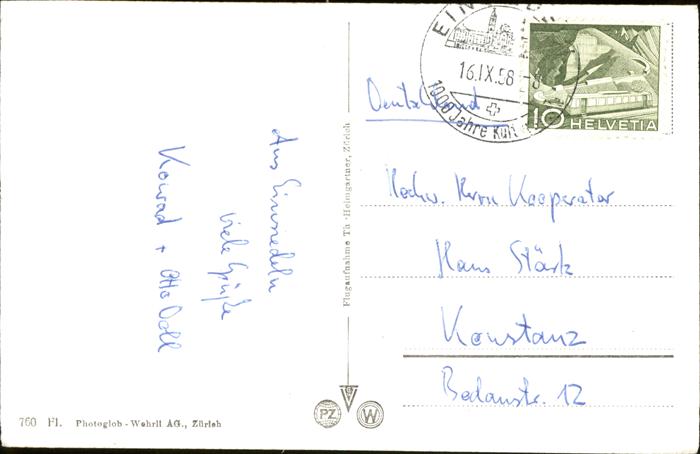 Aus Einsiedeln
viele Grüße
Konrad + Otto Doll
760 Fl. Photoglob-Wehrli AG., Zürich
Flugaufnahme Th. Heimgartner, Zürich
PZ
W
16.IX.58
1000 Jahre
10 HELVETIA
Deutschland
Hochw. Herrn Kooperator
Hans Stärk
Konstanz
Bodanstr. 12